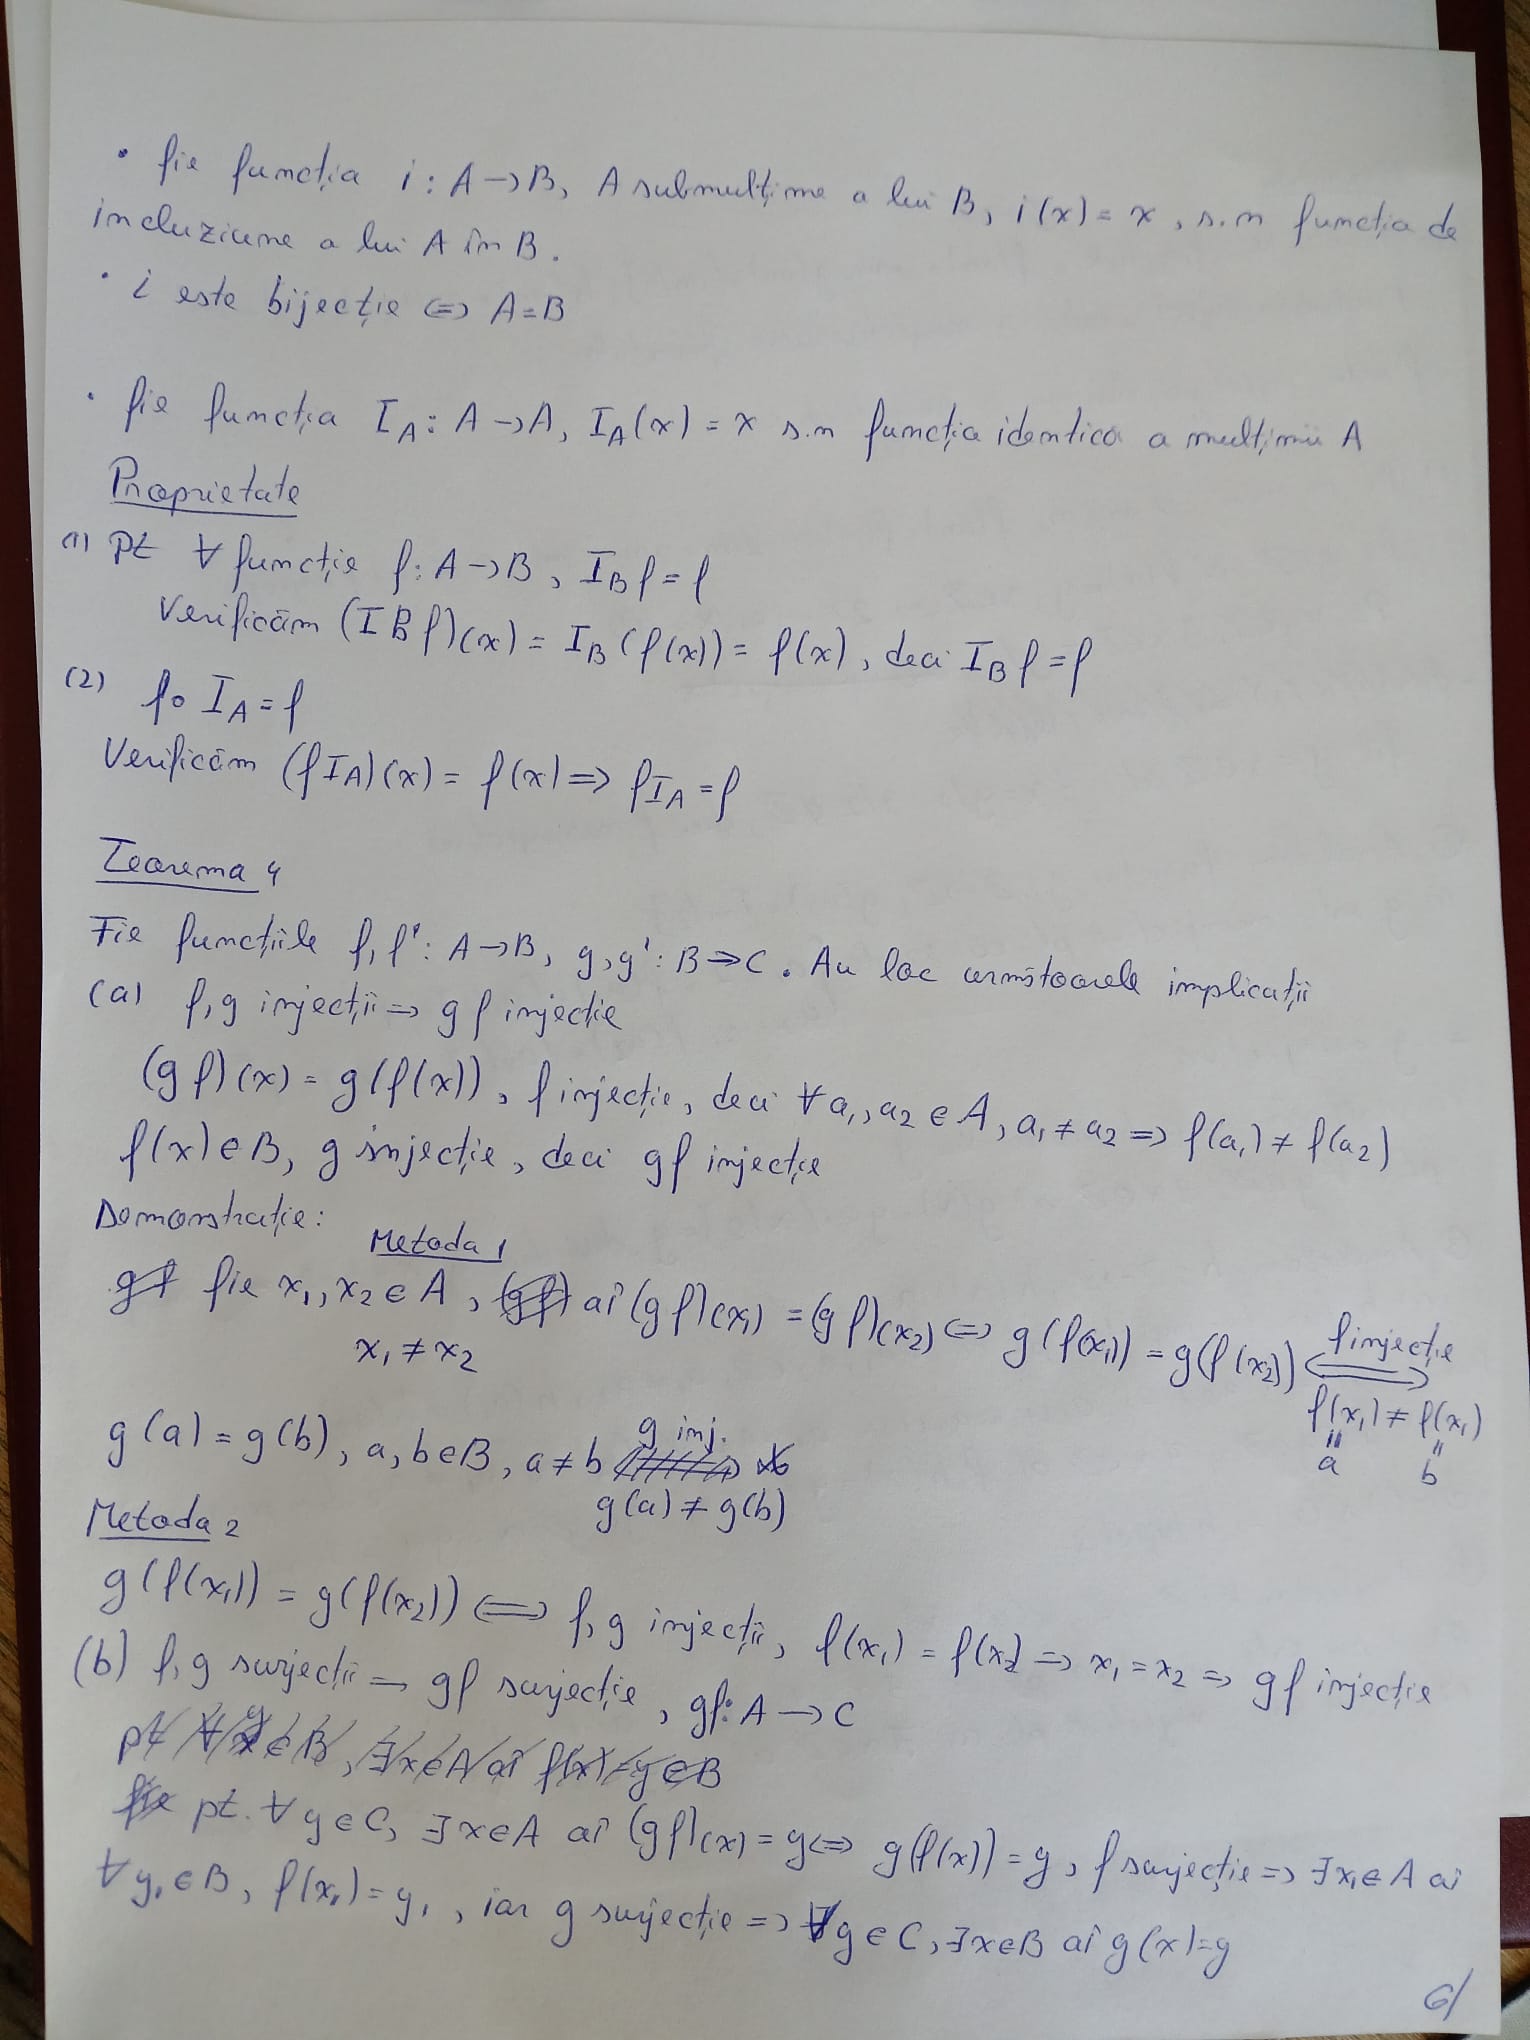 • fie funcția i : A → B, A submulțime a lui B, i(x) = x, s.n funcția de
incluziune a lui A în B.
• i este bijecție ⇔ A = B
• fie funcția I_A : A → A, I_A(x) = x s.n funcția identica a mulțimii A
Proprietate
(1) Pt ∀ funcție f : A → B, I_B f = f
Verificăm (I_B f)(x) = I_B(f(x)) = f(x), deci I_B f = f
(2) f ∘ I_A = f
Verificăm (f I_A)(x) = f(x) ⇒ f I_A = f
Teorema 4
Fie funcțiile f, f' : A → B, g, g' : B → C. Au loc următoarele implicații
(a) f, g injecții ⇒ g f injecție
(g f)(x) = g(f(x)), f injecție, deci ∀ a₁, a₂ ∈ A, a₁ ≠ a₂ ⇒ f(a₁) ≠ f(a₂)
f(x) ∈ B, g injecție, deci gf injecție
Demonstrație:
Metoda 1
fie x₁, x₂ ∈ A, aî (g f)(x₁) = (g f)(x₂) ⇔ g(f(x₁)) = g(f(x₂)) ⇔ f injecție
x₁ ≠ x₂
f(x₁) ≠ f(x₁)
a b
g(a) = g(b), a, b ∈ B, a ≠ b g inj.
g(a) ≠ g(b)
Metoda 2
g(f(x₁)) = g(f(x₂)) ⇔ f, g injecții, f(x₁) = f(x₂) ⇒ x₁ = x₂ ⇒ g f injecție
(b) f, g surjecții → gf surjecție, gf : A → C
pt ∀ y ∈ B, ∃ x ∈ A aî f(x) = y ∈ B
fie pt. ∀ y ∈ C, ∃ x ∈ A aî (g f)(x) = y ⇔ g(f(x)) = y, f surjecție ⇒ ∃ x₁ ∈ A aî
∀ y₁ ∈ B, f(x₁) = y₁, iar g surjecție ⇒ ∀ y ∈ C, ∃ x ∈ B aî g(x) = y
6/